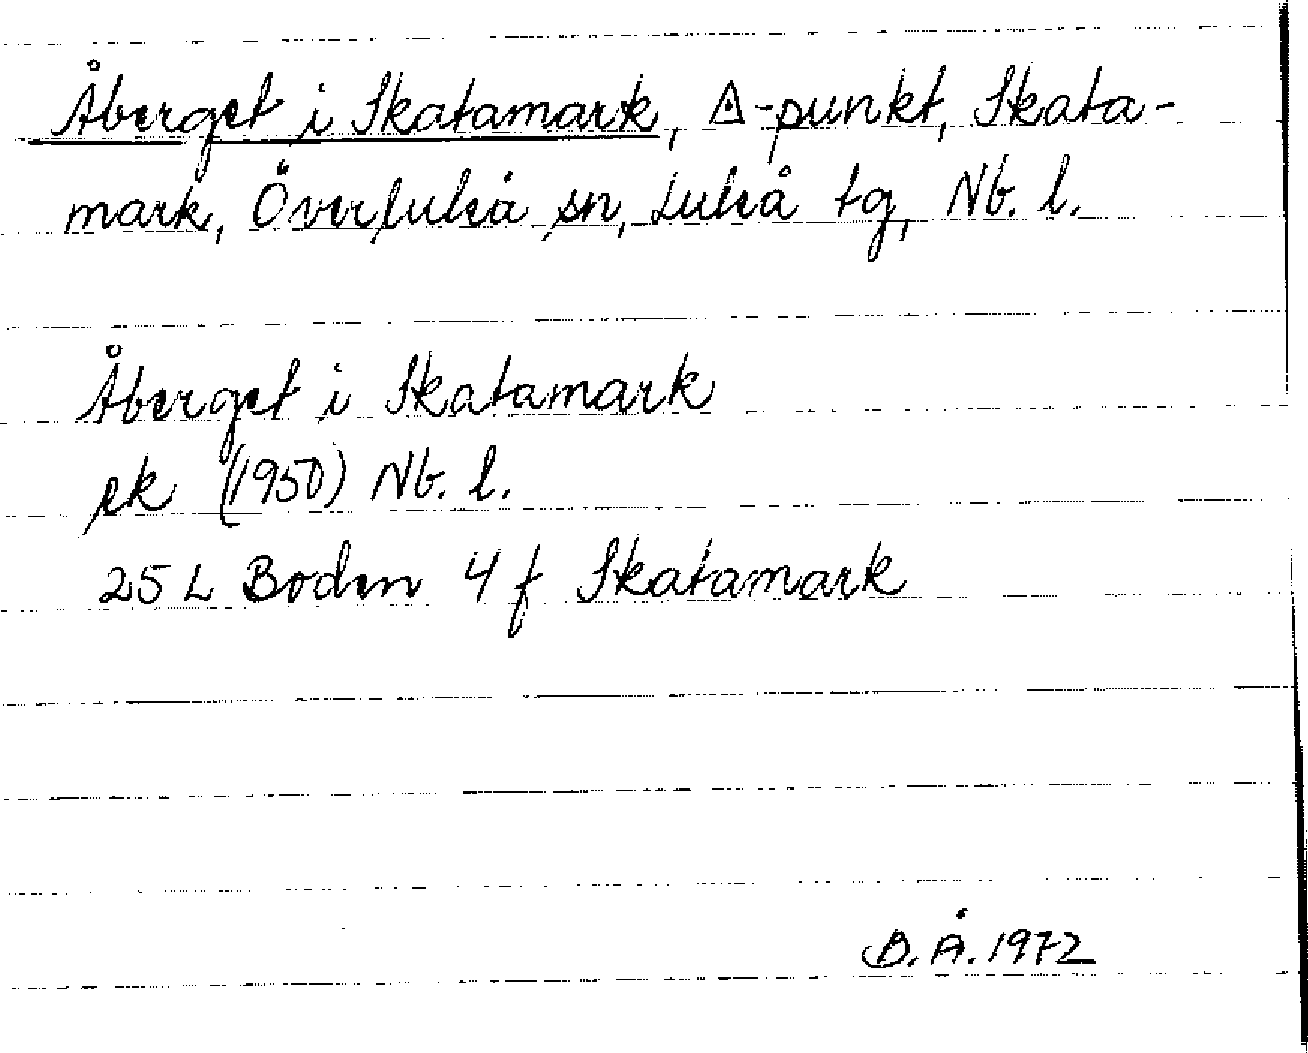 Åberget i Skatamark, ◬-punkt, Skata-
mark, Överluleå sn, Luleå tg, Nb. l.
Åberget i Skatamark
ek (1950) Nb. l.
25 L Boden 4 f Skatamark
B.Å. 1972